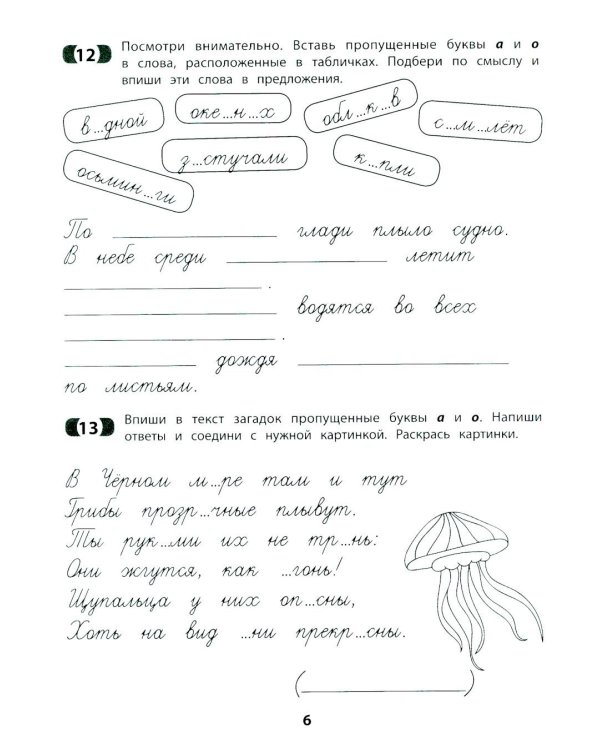 12 Посмотри внимательно. Вставь пропущенные буквы а и о
в слова, расположенные в табличках. Подбери по смыслу и
впиши эти слова в предложения.
в...дной
оке...н...х
обл...к...в
с...м...лёт
осьмин...ги
з...стучали
к...пли
По ____________ глади плыло судно.
В небе среди ____________ летит
____________.
____________ водятся во всех
____________.
____________ дождя ____________
по листьям.
13 Впиши в текст загадок пропущенные буквы а и о. Напиши
ответы и соедини с нужной картинкой. Раскрась картинки.
В Чёрном м...ре там и тут
Грибы прозр...чные плывут.
Ты рук...ми их не тр...нь:
Они жгутся, как ...гонь!
Щупальца у них оп...сны,
Хоть на вид ...ни прекр...сны.
(____________)
6